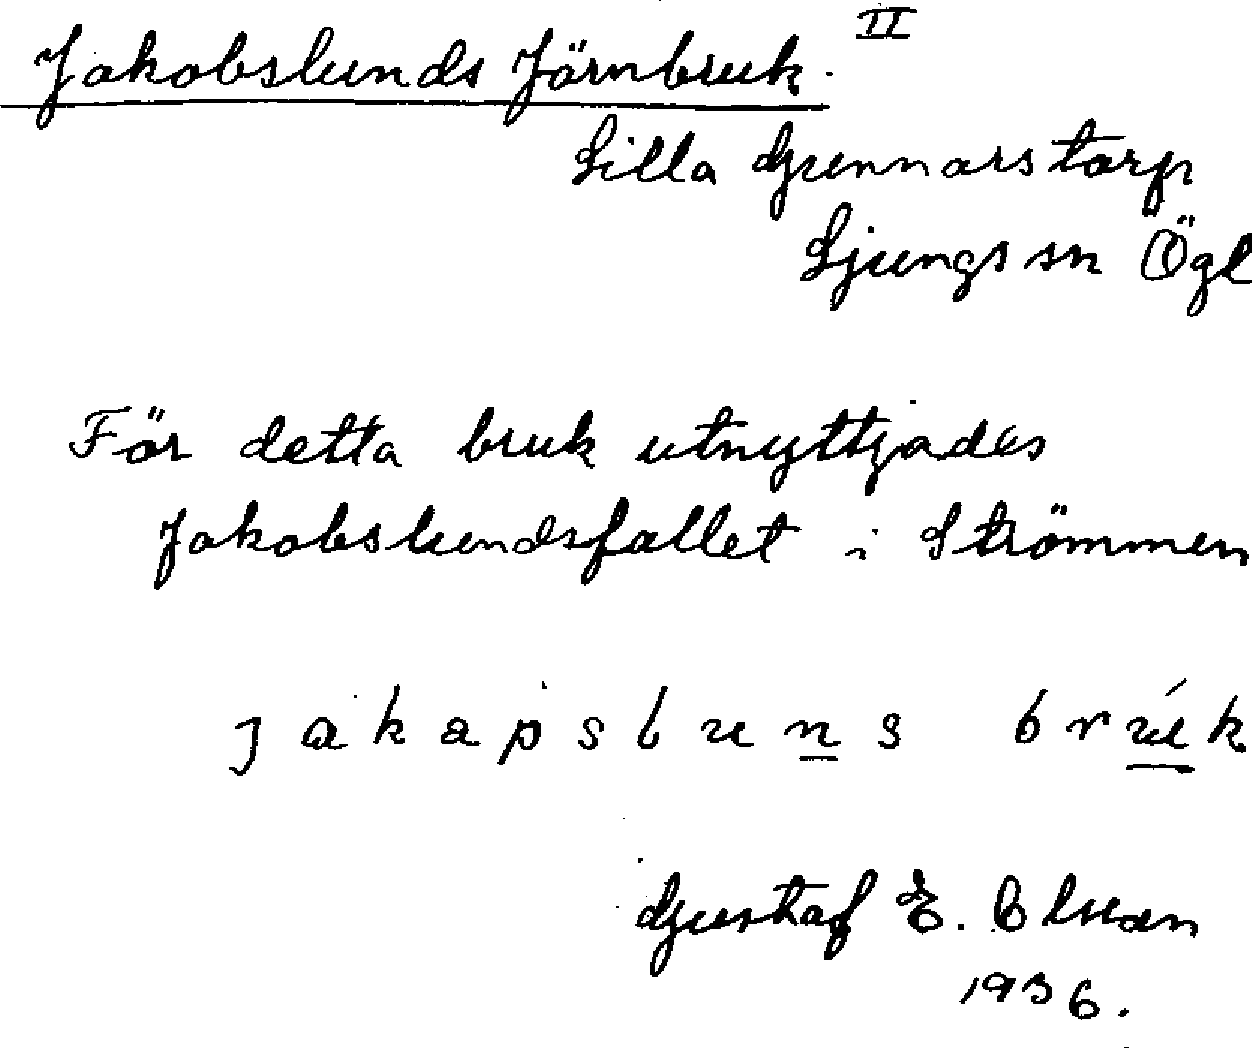 Jakobslunds Järnbruk. II
Lilla Gunnarstorp
Ljungs sn Ögl
För detta bruk utnyttjades
Jakobslundsfallet i Strömmen
jakapsluns brúk
Gustaf E.
1936.